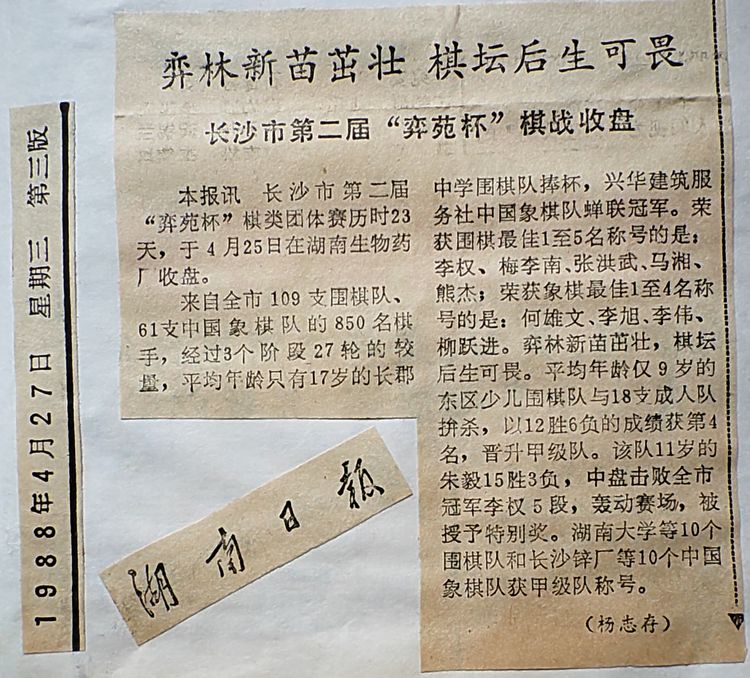 弈林新苗茁壮 棋坛后生可畏
长沙市第二届“弈苑杯”棋战收盘
本报讯 长沙市第二届
“弈苑杯”棋类团体赛历时23
天，于4月25日在湖南生物药
厂收盘。
来自全市109支围棋队、
61支中国象棋队的850名棋
手，经过3个阶段27轮的较
量，平均年龄只有17岁的长郡
中学围棋队捧杯，兴华建筑服
务社中国象棋队蝉联冠军。荣
获围棋最佳1至5名称号的是：
李权、梅李南、张洪武、马湘、
熊杰；荣获象棋最佳1至4名称
号的是：何雄文、李旭、李伟、
柳跃进。弈林新苗茁壮，棋坛
后生可畏。平均年龄仅9岁的
东区少儿围棋队与18支成人队
拚杀，以12胜6负的成绩获第4
名，晋升甲级队。该队11岁的
朱毅15胜3负，中盘击败全市
冠军李权5段，轰动赛场，被
授予特别奖。湖南大学等10个
围棋队和长沙锌厂等10个中国
象棋队获甲级队称号。
（杨志存）
1988年4月27日 星期三 第三版
湖南日报